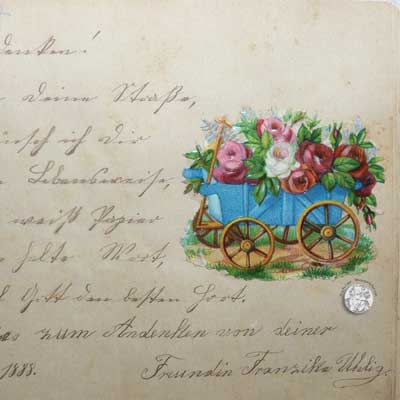 denken!
deine Straße,
wünsch ich dir
Lebensweise,
weiß Papier
halte Wort,
Gott den besten Hort.
zum Andenken von deiner
1888. Freundin Franziska Uhlig.